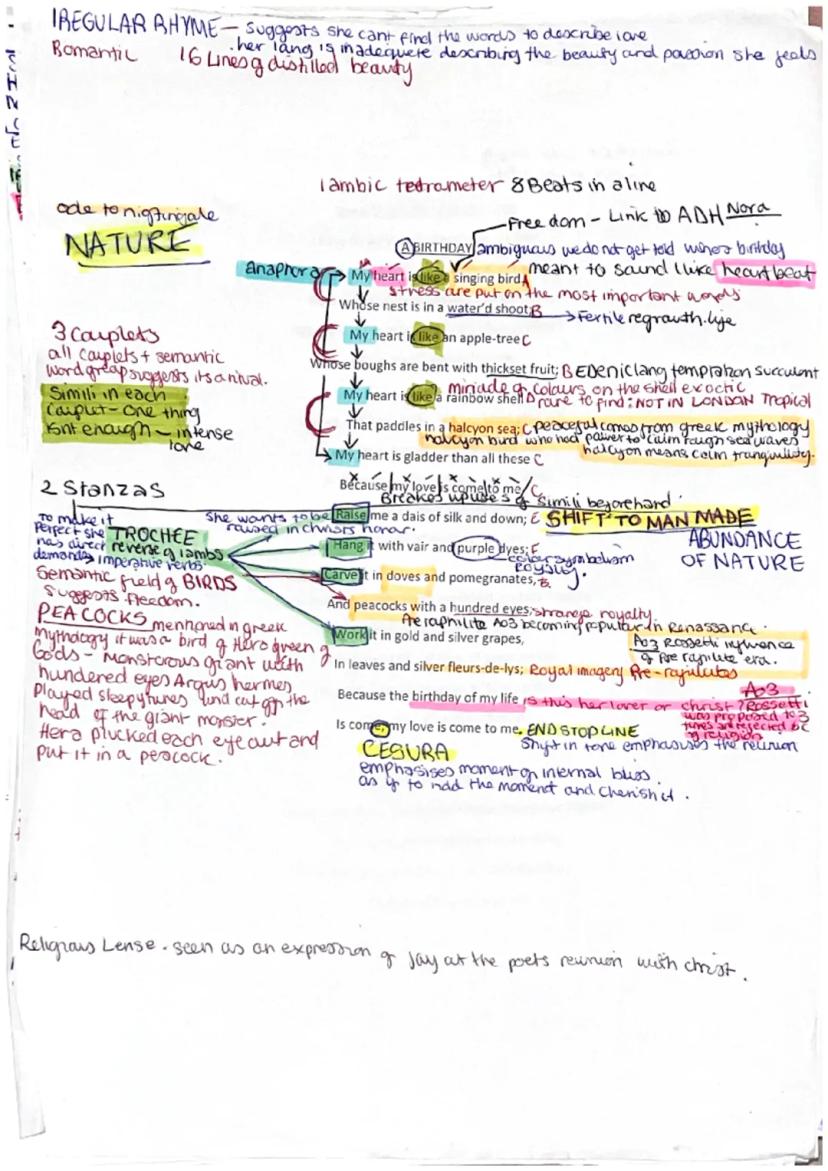 IREGULAR RHYME - suggests she cant find the words to describe love
. her lang is inadequete describing the beauty and passion she feels
Romantic 16 Lines of distilled beauty
Iambic tedrameter 8 Beats in a line
ode to nightingale
NATURE
Freedom - Link to ADH Nora
A BIRTHDAY ambiguous we do not get told whens birthday
anaphora
My heart is like a singing bird A meant to sound like heart beat
stress are put on the most important words
Whose nest is in a water'd shoot; B Fertile regrowth. life
3 Couplets
all couplets + semantic
word group suggests its a ritual.
My heart is like an apple-tree C
Whose boughs are bent with thickset fruit; B EDENIC lang temptation succulent
Simili in each
Couplet - One thing
isnt enough - intense
love
My heart is like a rainbow shell D miriade of colours on the shell exoctic
rare to find: NOT IN LONDON Tropical
That paddles in a halcyon sea; C peaceful comes from greek mythology
halcyon bird who had power to calm rough sea waves
halcyon means calm tranquility.
My heart is gladder than all these C
Because my love is come to me. C
Breakes up use of Simili beforehand.
2 Stanzas
She wants to be raised in christs honor.
Raise me a dais of silk and down; E SHIFT TO MAN MADE
ABUNDANCE
OF NATURE
To make it
Perfect she
has direct
demands
TROCHEE
reverse of iambs
imperative verbs.
Hang it with vair and purple dyes; F
color symbolism
royalty.
Carve it in doves and pomegranates, B.
Semantic field of BIRDS
Suggests freedom.
And peacocks with a hundred eyes; strange royalty
Preraphilite Ao3 becoming popular in Renassance.
PEACOCKS mentioned in greek
mythology it was a bird of Hera queen of
Gods - Monstorous giant with
hundered eyes Argus hermes
Played sleepy tunes and cut off the
head of the giant monster.
Hera plucked each eye out and
put it in a peacock.
Work it in gold and silver grapes,
Ao3 Rossetti influence
of Pre rapilite era.
In leaves and silver fleurs-de-lys; Royal imagery Pre-rapilutes
Ao3
Because the birthday of my life is this her lover or christ? Rossetti
was proposed to 3
times and rejected bc
of religion
Is come, my love is come to me. END STOP LINE
Shift in tone emphasises the reunion
CESURA
emphasises moment of internal bliss.
as if to hold the moment and cherish it.
Religious Lense. seen as an expression of Joy at the poets reunion with christ.